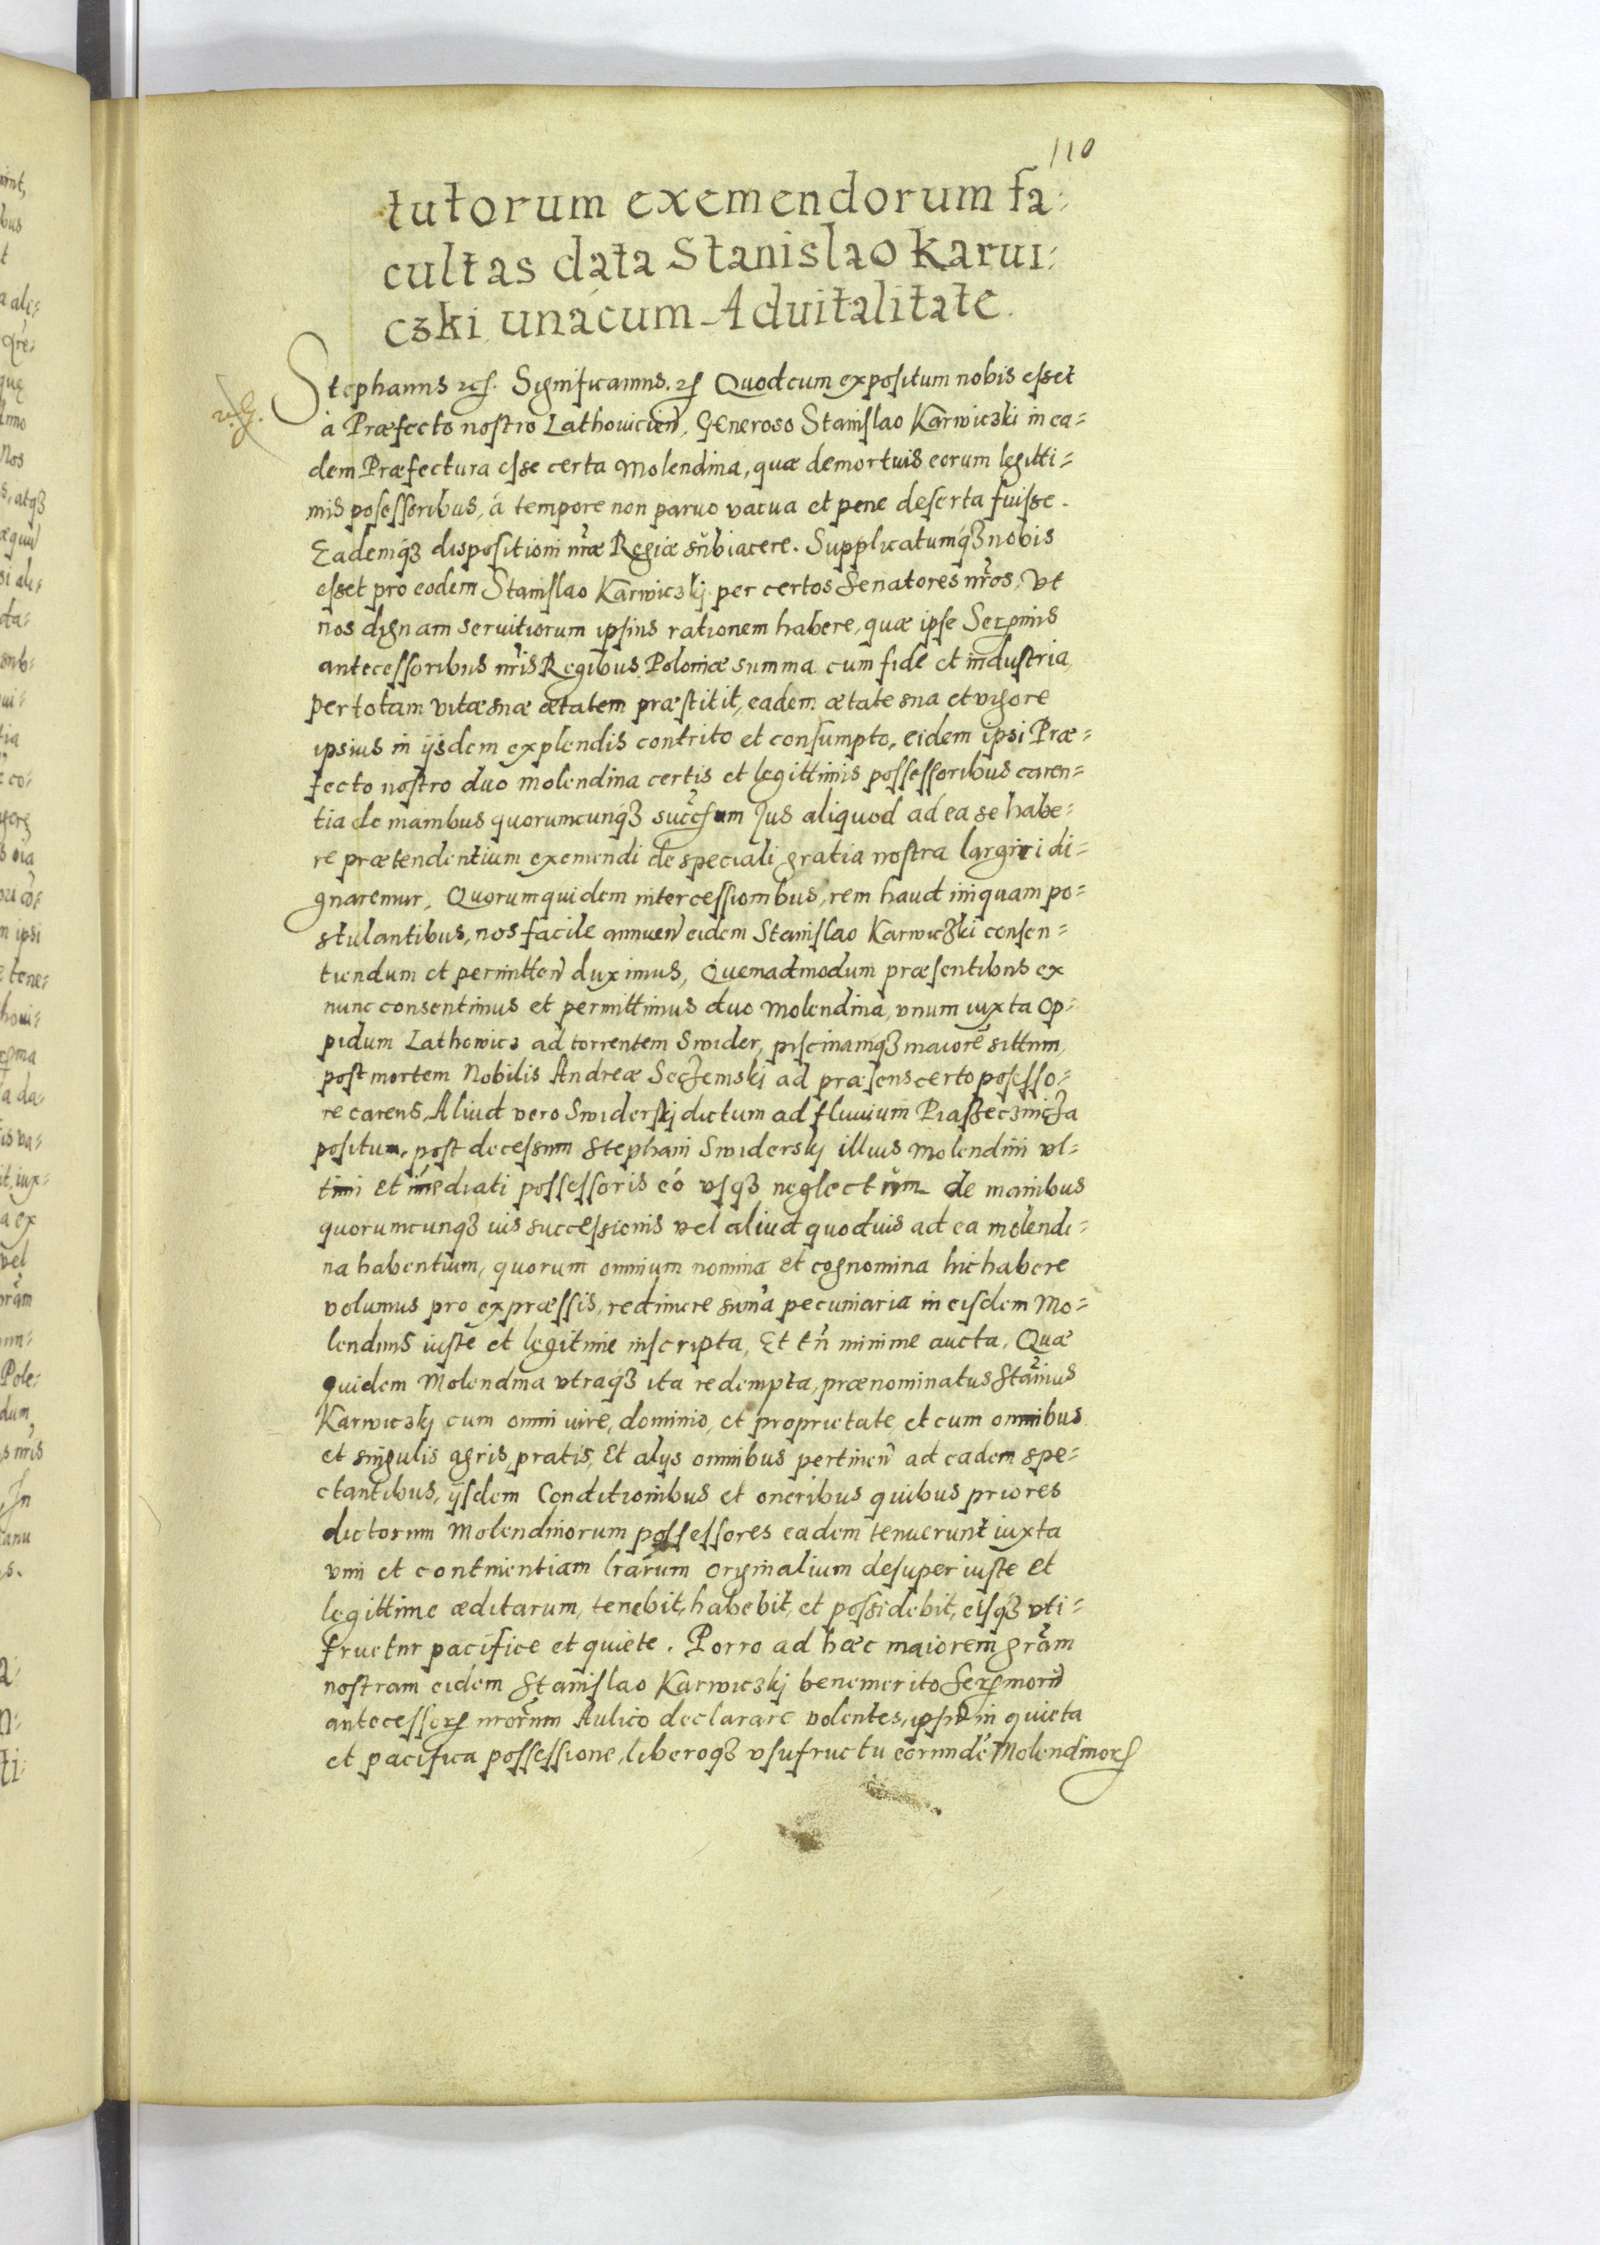 110
tutorum exemendorum fa:
cultas data Stanislao Karui:
czki unácum Aduitalitate.
Stephanus etc. Significamus. etc Quod cum expositum nobis esset
à Præfecto nostro Lathouicien̄, Generoso Stanislao Karwiczki in ea=
dem Præfectura esse certa Molendina, quæ demortuis eorum legitti=
mis posessoribus, á tempore non paruo vacua et pene deserta fuisse.
Eademq́ꝫ dispositioni nr̄æ Regiæ subiacere. Supplicatumq́ꝫ nobis
esset pro eodem Stanislao Karwiczkj per certos Senatores nr̄os, Vt
nos dignam seruitiorum ipsius rationem habere, quæ ipse Serꝫmis
antecessoribus nr̄is Regibus Poloniæ summa cum fide et industria
per totam vitæ suæ ætatem præstitit, eadem ætate sua et vigore
ipsius in ijsdem explendis contrito et consumpto, eidem ipsi Præ=
fecto nostro duo molendina certis et legittimis possessoribus caren=
tia de manibus quorumcunq́ꝫ succ̄sum Jus aliquod ad ea se habe=
re prætendentium exemendi de speciali gratia nostra largiri di=
gnaremur, Quorum quidem intercessionibus, rem haud iniquam po=
stulantibus, nos facile annuen̄ eidem Stanislao Karwiczki consen=
tiendum et permitten̄ duximus, Quemadmodum præsentibus ex
nunc consentimus et permittimus duo Molendina, vnum iuxta Op=
pidum Lathowicz ad torrentem Swider, piscinamqꝫ maiorē sittum,
post mortem Nobilis Andreæ Seczemskj ad præsens certo posesso=
re carens, Aliud vero Swiderskj dictum ad fluuium Piaszecznicza
positum, post decessum Stephani Swiderskj illius Molendini vl=
timi et īmediati possessoris eó vsqꝫ neglectŭm de manibus
quorumcunqꝫ uis successionis vel aliud quoduis ad ea molendi=
na habentium, quorum omnium nomina et cognomina hic habere
volumus pro expræssis, redimere sum̄a pecuniaria in eisdem Mo=
lendinis iuste et legitime inscripta, Et tn̄ minime aucta, Quæ
quidem Molendina vtraq́ꝫ ita redempta, prænominatus Stan̄ius
Karwiczkj cum omni uire, dominio, et proprietate, et cum omnibus
et singulis agris, pratis, Et alijs omnibus pertinen̄ ad eadem spe=
ctantibus, ijsdem Conditionibus et oneribus quibus priores
dictorum Molendinorum possessores eadem tenuerunt iuxta
vim et continentiam lrārum originalium desuper iuste et
legittime æditarum, tenebit, habebit, et possidebit, eisq́ꝫ vti=
fructur pacifice et quiete. Porro ad hæc maiorem grām
nostram eidem Stanislao Karwiczkj benemerito Serꝫmorū
antecessorꝫ nrōrum Aulico declarare volentes, in quieta
et pacifica possessione, liberoqꝫ vsufructu eorundē Molendinorꝫ